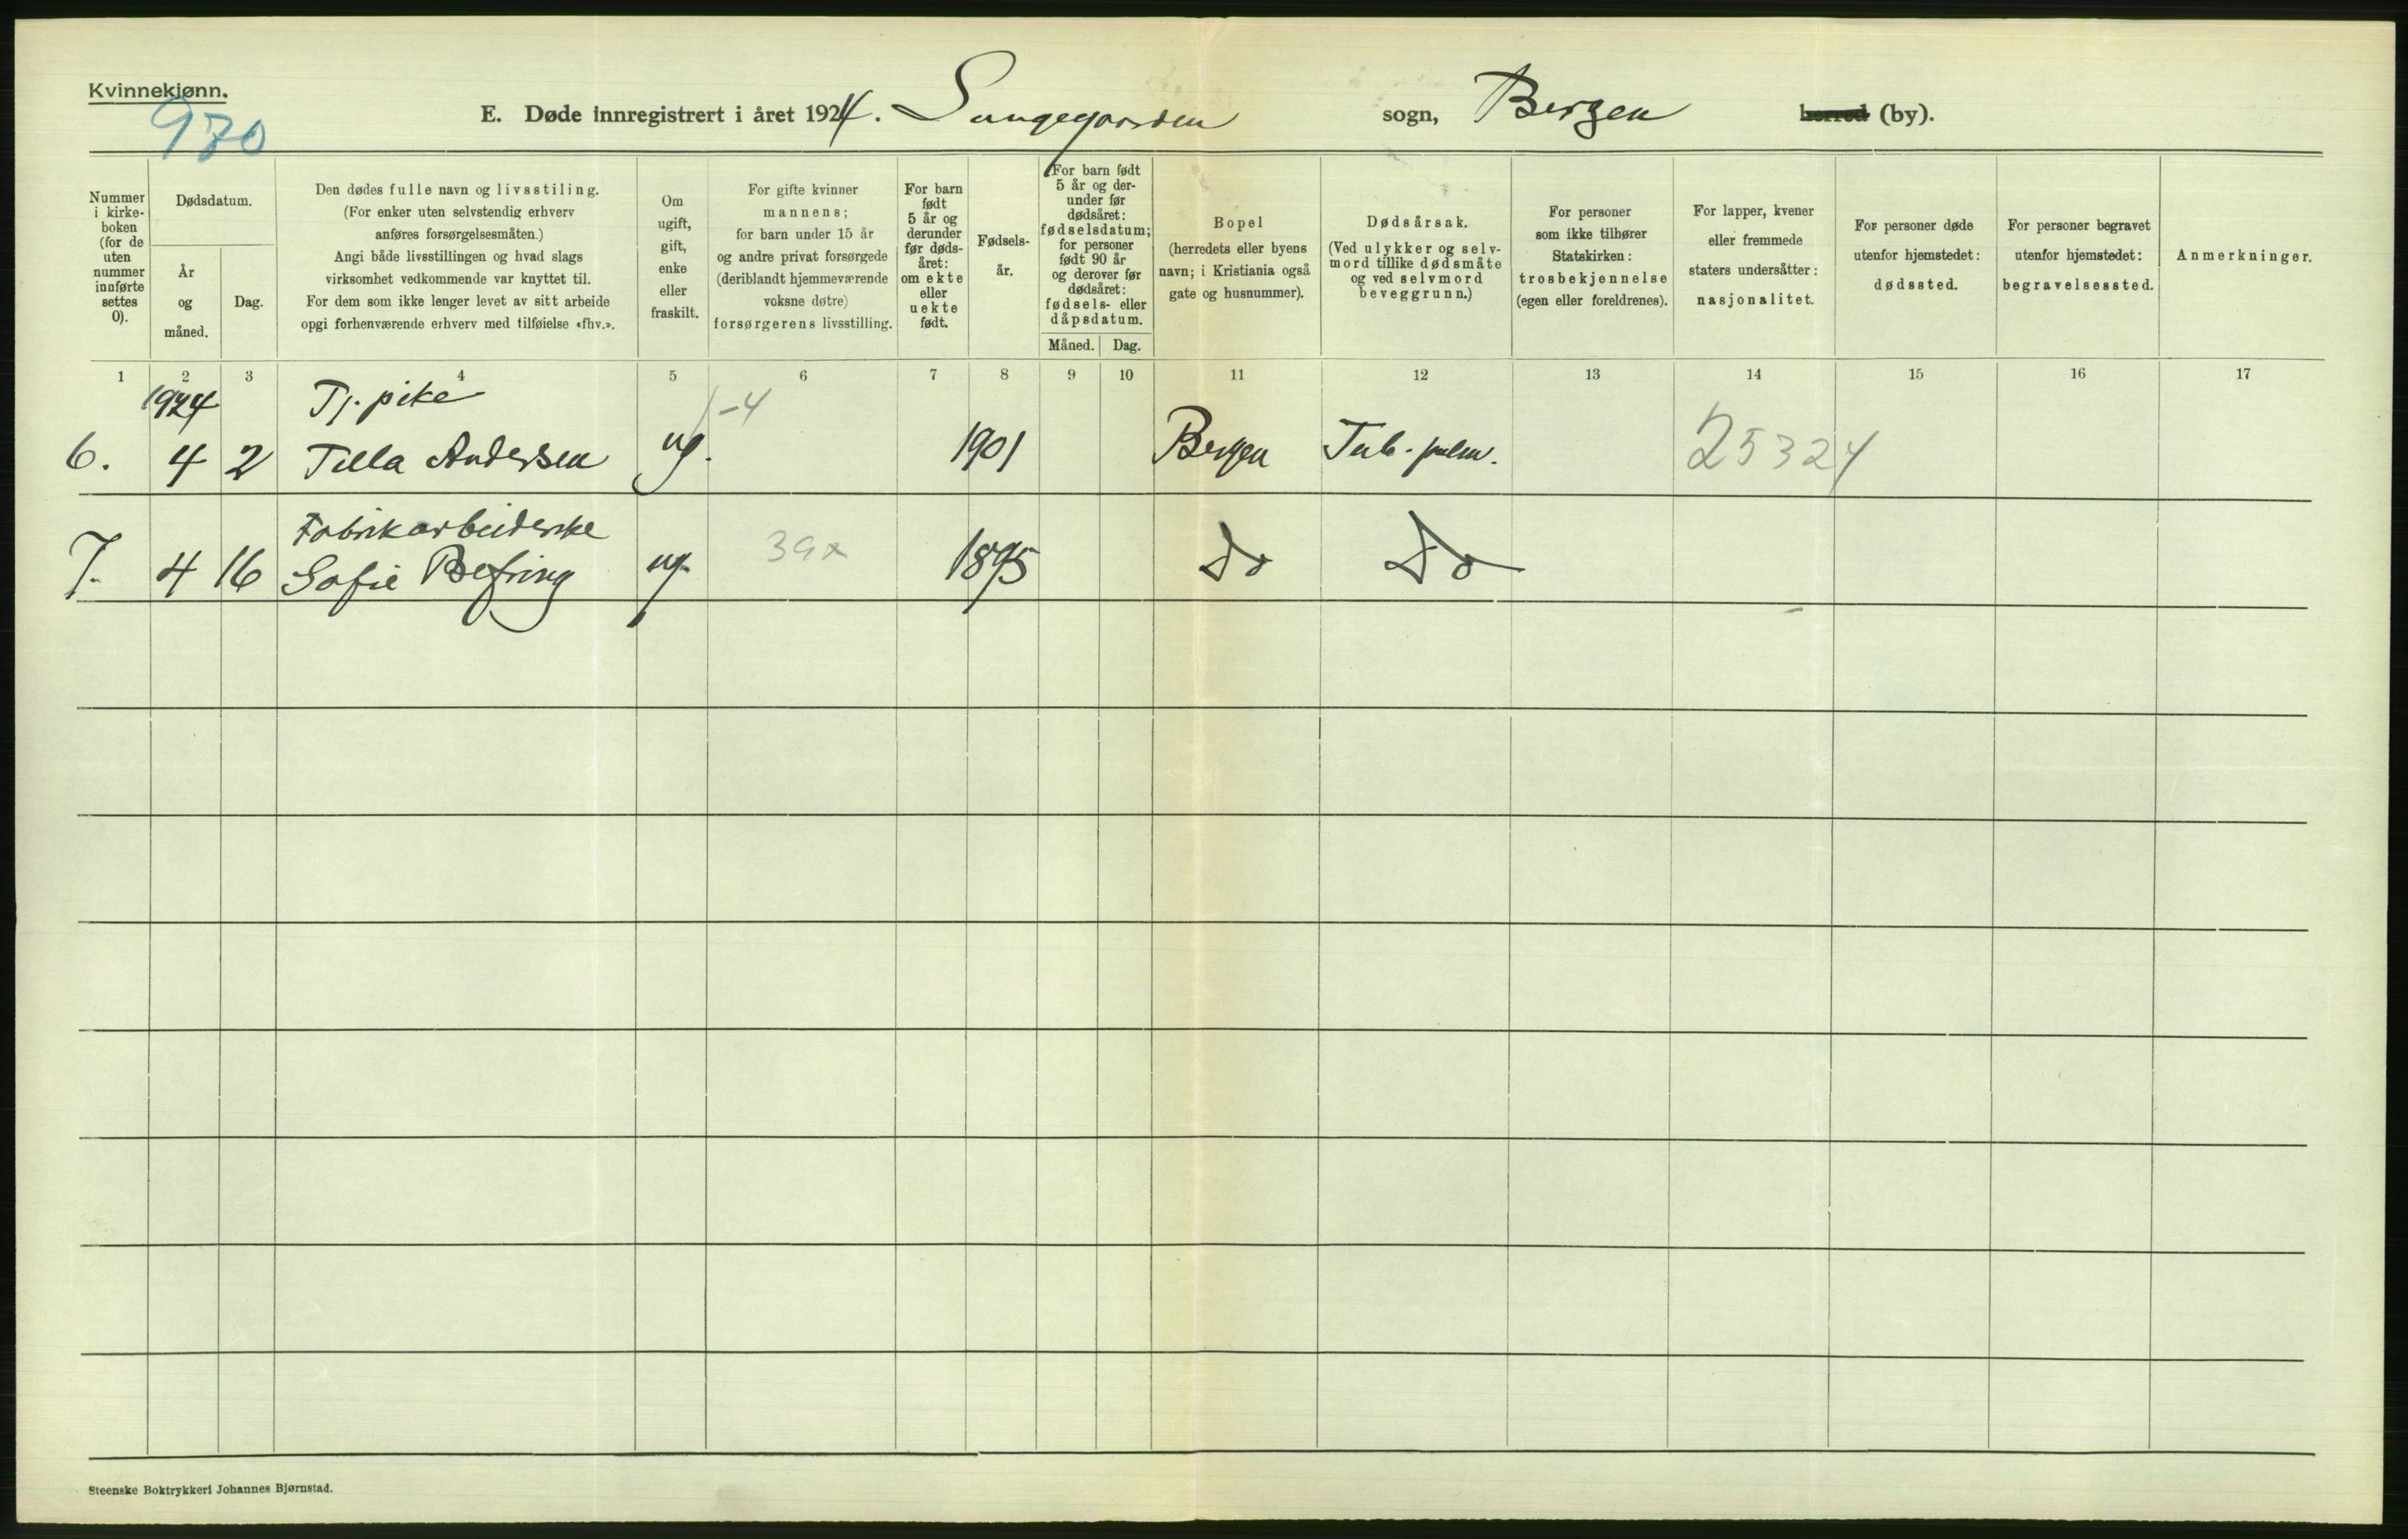 Kvinnekjønn.
970
E. Døde innregistrert i året 1924. Lungegaarden sogn, Bergen herred (by).
Nummer i kirke- boken (for de uten nummer innførte settes 0).
Dødsdatum.
År og måned.
Dag.
Den dødes fulle navn og livsstiling.
(For enker uten selvstendig erhverv
anføres forsørgelsesmåten.)
Angi både livsstillingen og hvad slags
virksomhet vedkommende var knyttet til.
For dem som ikke lenger levet av sitt arbeide
opgi forhenværende erhverv med tilføielse «fhv.».
Om
ugift,
gift,
enke
eller
fraskilt.
For gifte kvinner
mannens;
for barn under 15 år
og andre privat forsørgede
(deriblandt hjemmeværende
voksne døtre)
forsørgerens livsstilling.
For barn
født
5 år og
derunder
før døds-
året:
om ekte
eller
uekte
født.
Fødsels-
år.
For barn født
5 år og der-
under før
dødsåret:
fødselsdatum;
for personer
født 90 år
og derover før
dødsåret:
fødsels- eller
dåpsdatum.
Måned. Dag.
Bopel
(herredets eller byens
navn; i Kristiania også
gate og husnummer).
Dødsårsak.
(Ved ulykker og selv-
mord tillike dødsmåte
og ved selvmord
beveggrunn.)
For personer
som ikke tilhører
Statskirken:
trosbekjennelse
(egen eller foreldrenes).
For lapper, kvener
eller fremmede
staters undersåtter:
nasjonalitet.
For personer døde
utenfor hjemstedet:
dødssted.
For personer begravet
utenfor hjemstedet:
begravelsessted.
Anmerkninger.
1 2 3 4 5 6 7 8 9 10 11 12 13 14 15 16 17
1924 Tj. pike -4
6. 4 2 Tilla Andersen ug. 1901 Bergen Tub. pulm. 25324
Fabrikarbeiderske
7. 4 16 Sofie Befring ug. 39x 1895 Do Do
Steenske Boktrykkeri Johannes Bjørnstad.